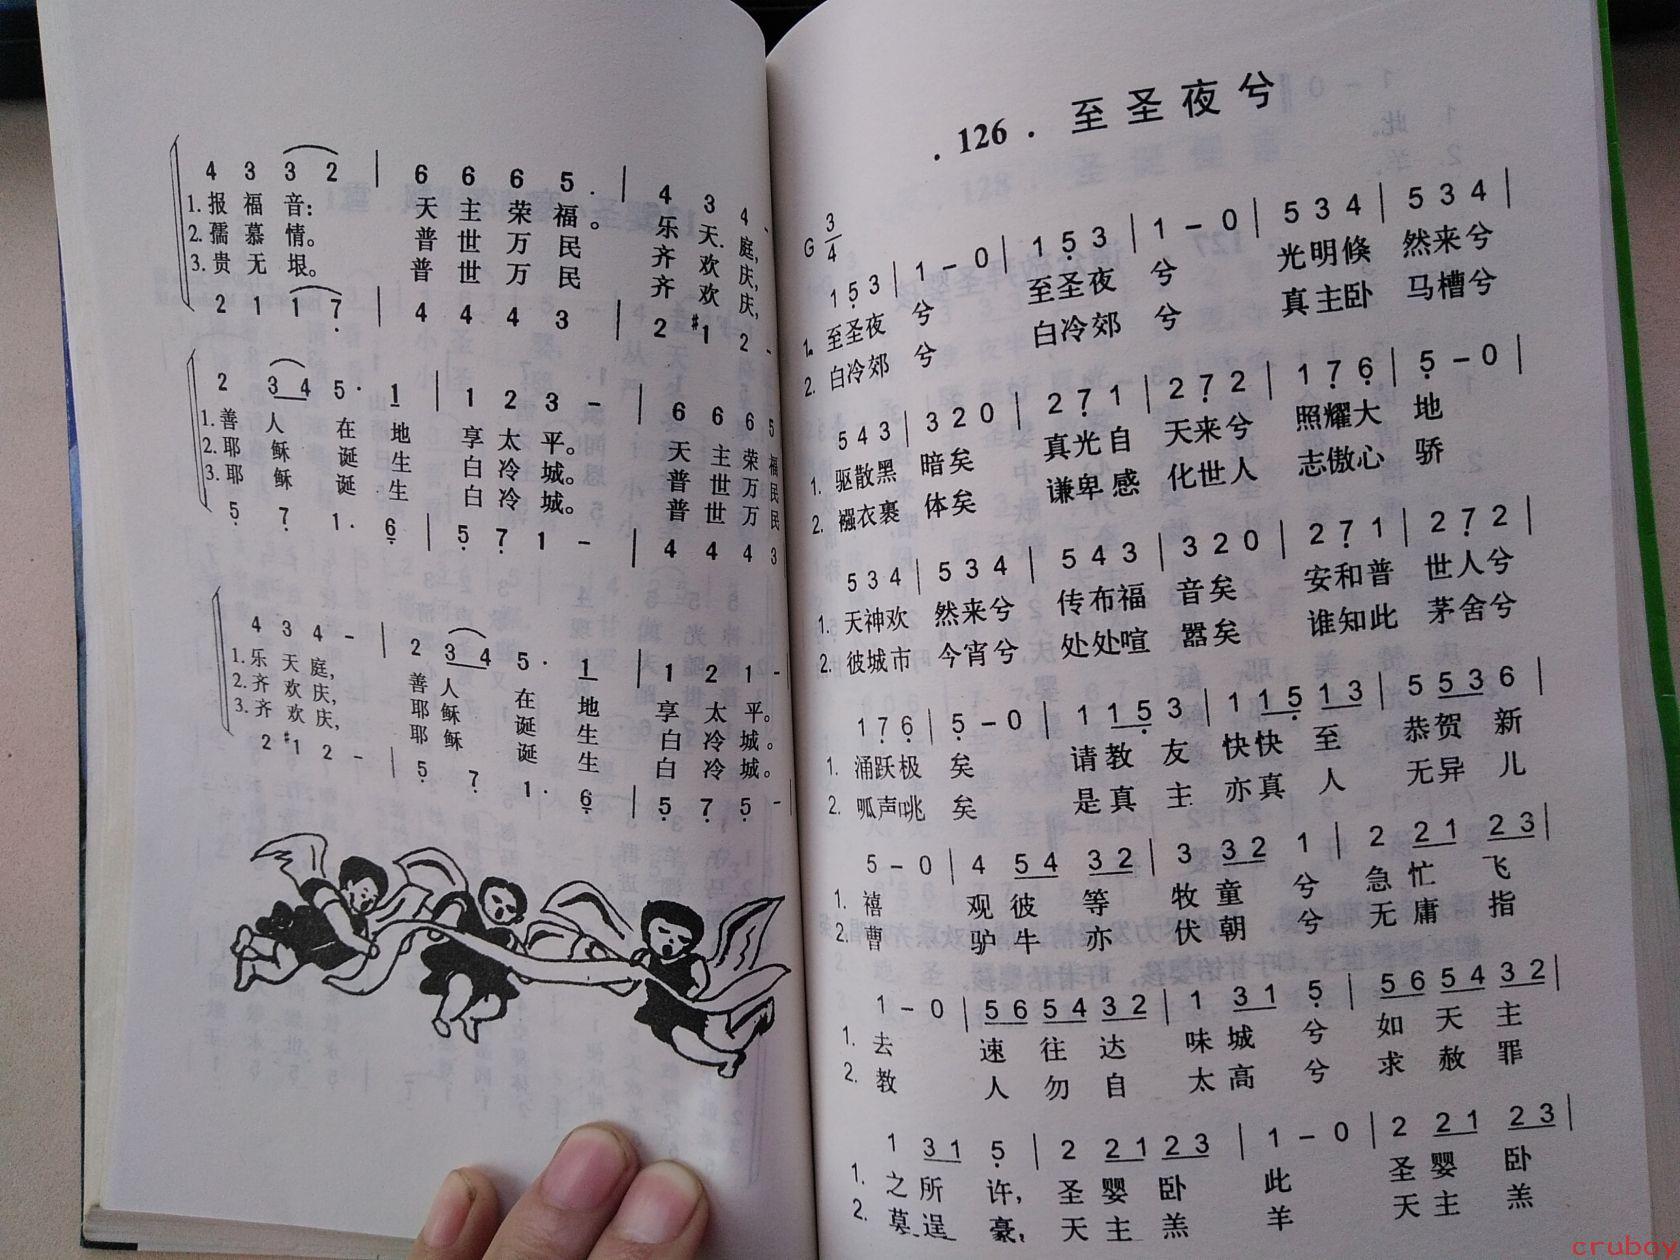 4 3 3 2 | 6 6 6 5 . | 4 3 4 -
1. 报 福 音: 天 主 荣 福。 乐 天 庭,
2. 孺 慕 情。 普 世 万 民 齐 欢 庆,
3. 贵 无 垠。 普 世 万 民 齐 欢 庆,
2 1 1 7 | 4 4 4 3 | 2 #1 2 -
2 3 4 5 . 1 | 1 2 3 - | 6 6 6 5
1. 善 人 在 地 享 太 平。 天 主 荣 福
2. 耶 稣 诞 生 白 冷 城。 普 世 万 民
3. 耶 稣 诞 生 白 冷 城。 普 世 万 民
5 7 1 . 6 | 5 7 1 - | 4 4 4 3
4 3 4 - | 2 3 4 5 . 1 | 1 2 1 -
1. 乐 天 庭, 善 人 在 地 享 太 平。
2. 齐 欢 庆, 耶 稣 诞 生 白 冷 城。
3. 齐 欢 庆, 耶 稣 诞 生 白 冷 城。
2 #1 2 - | 5 7 1 . 6 | 5 7 5 -
. 126 . 至 圣 夜 兮
G 3/4
1 5 3 | 1 - 0 | 1 5 3 | 1 - 0 | 5 3 4 | 5 3 4 |
1. 至圣夜 兮 至圣夜 兮 光明倏 然来兮
2. 白冷郊 兮 白冷郊 兮 真主卧 马槽兮
5 4 3 | 3 2 0 | 2 7 1 | 2 7 2 | 1 7 6 | 5 - 0 |
1. 驱散黑 暗矣 真光自 天来兮 照耀大 地
2. 襁衣裹 体矣 谦卑感 化世人 志傲心 骄
5 3 4 | 5 3 4 | 5 4 3 | 3 2 0 | 2 7 1 | 2 7 2 |
1. 天神欢 然来兮 传布福 音矣 安和普 世人兮
2. 彼城市 今宵兮 处处喧 嚣矣 谁知此 茅舍兮
1 7 6 | 5 - 0 | 1 1 5 3 | 1 1 5 1 3 | 5 5 3 6 |
1. 涌跃极 矣 请教 友 快快 至 恭贺 新
2. 呱声咷 矣 是真 主 亦真 人 无异 儿
5 - 0 | 4 5 4 3 2 | 3 3 2 1 | 2 2 1 2 3 |
1. 禧 观 彼 等 牧 童 兮 急 忙 飞
2. 曹 驴 牛 亦 伏 朝 兮 无 庸 指
1 - 0 | 5 6 5 4 3 2 | 1 3 1 5 | 5 6 5 4 3 2 |
1. 去 速 往 达 味 城 兮 如 天 主
2. 教 人 勿 自 太 高 兮 求 赦 罪
1 3 1 5 | 2 2 1 2 3 | 1 - 0 | 2 2 1 2 3 |
1. 之 所 许, 圣 婴 卧 此 圣 婴 卧
2. 莫 逞 豪, 天 主 羔 羊 天 主 羔
cruboy